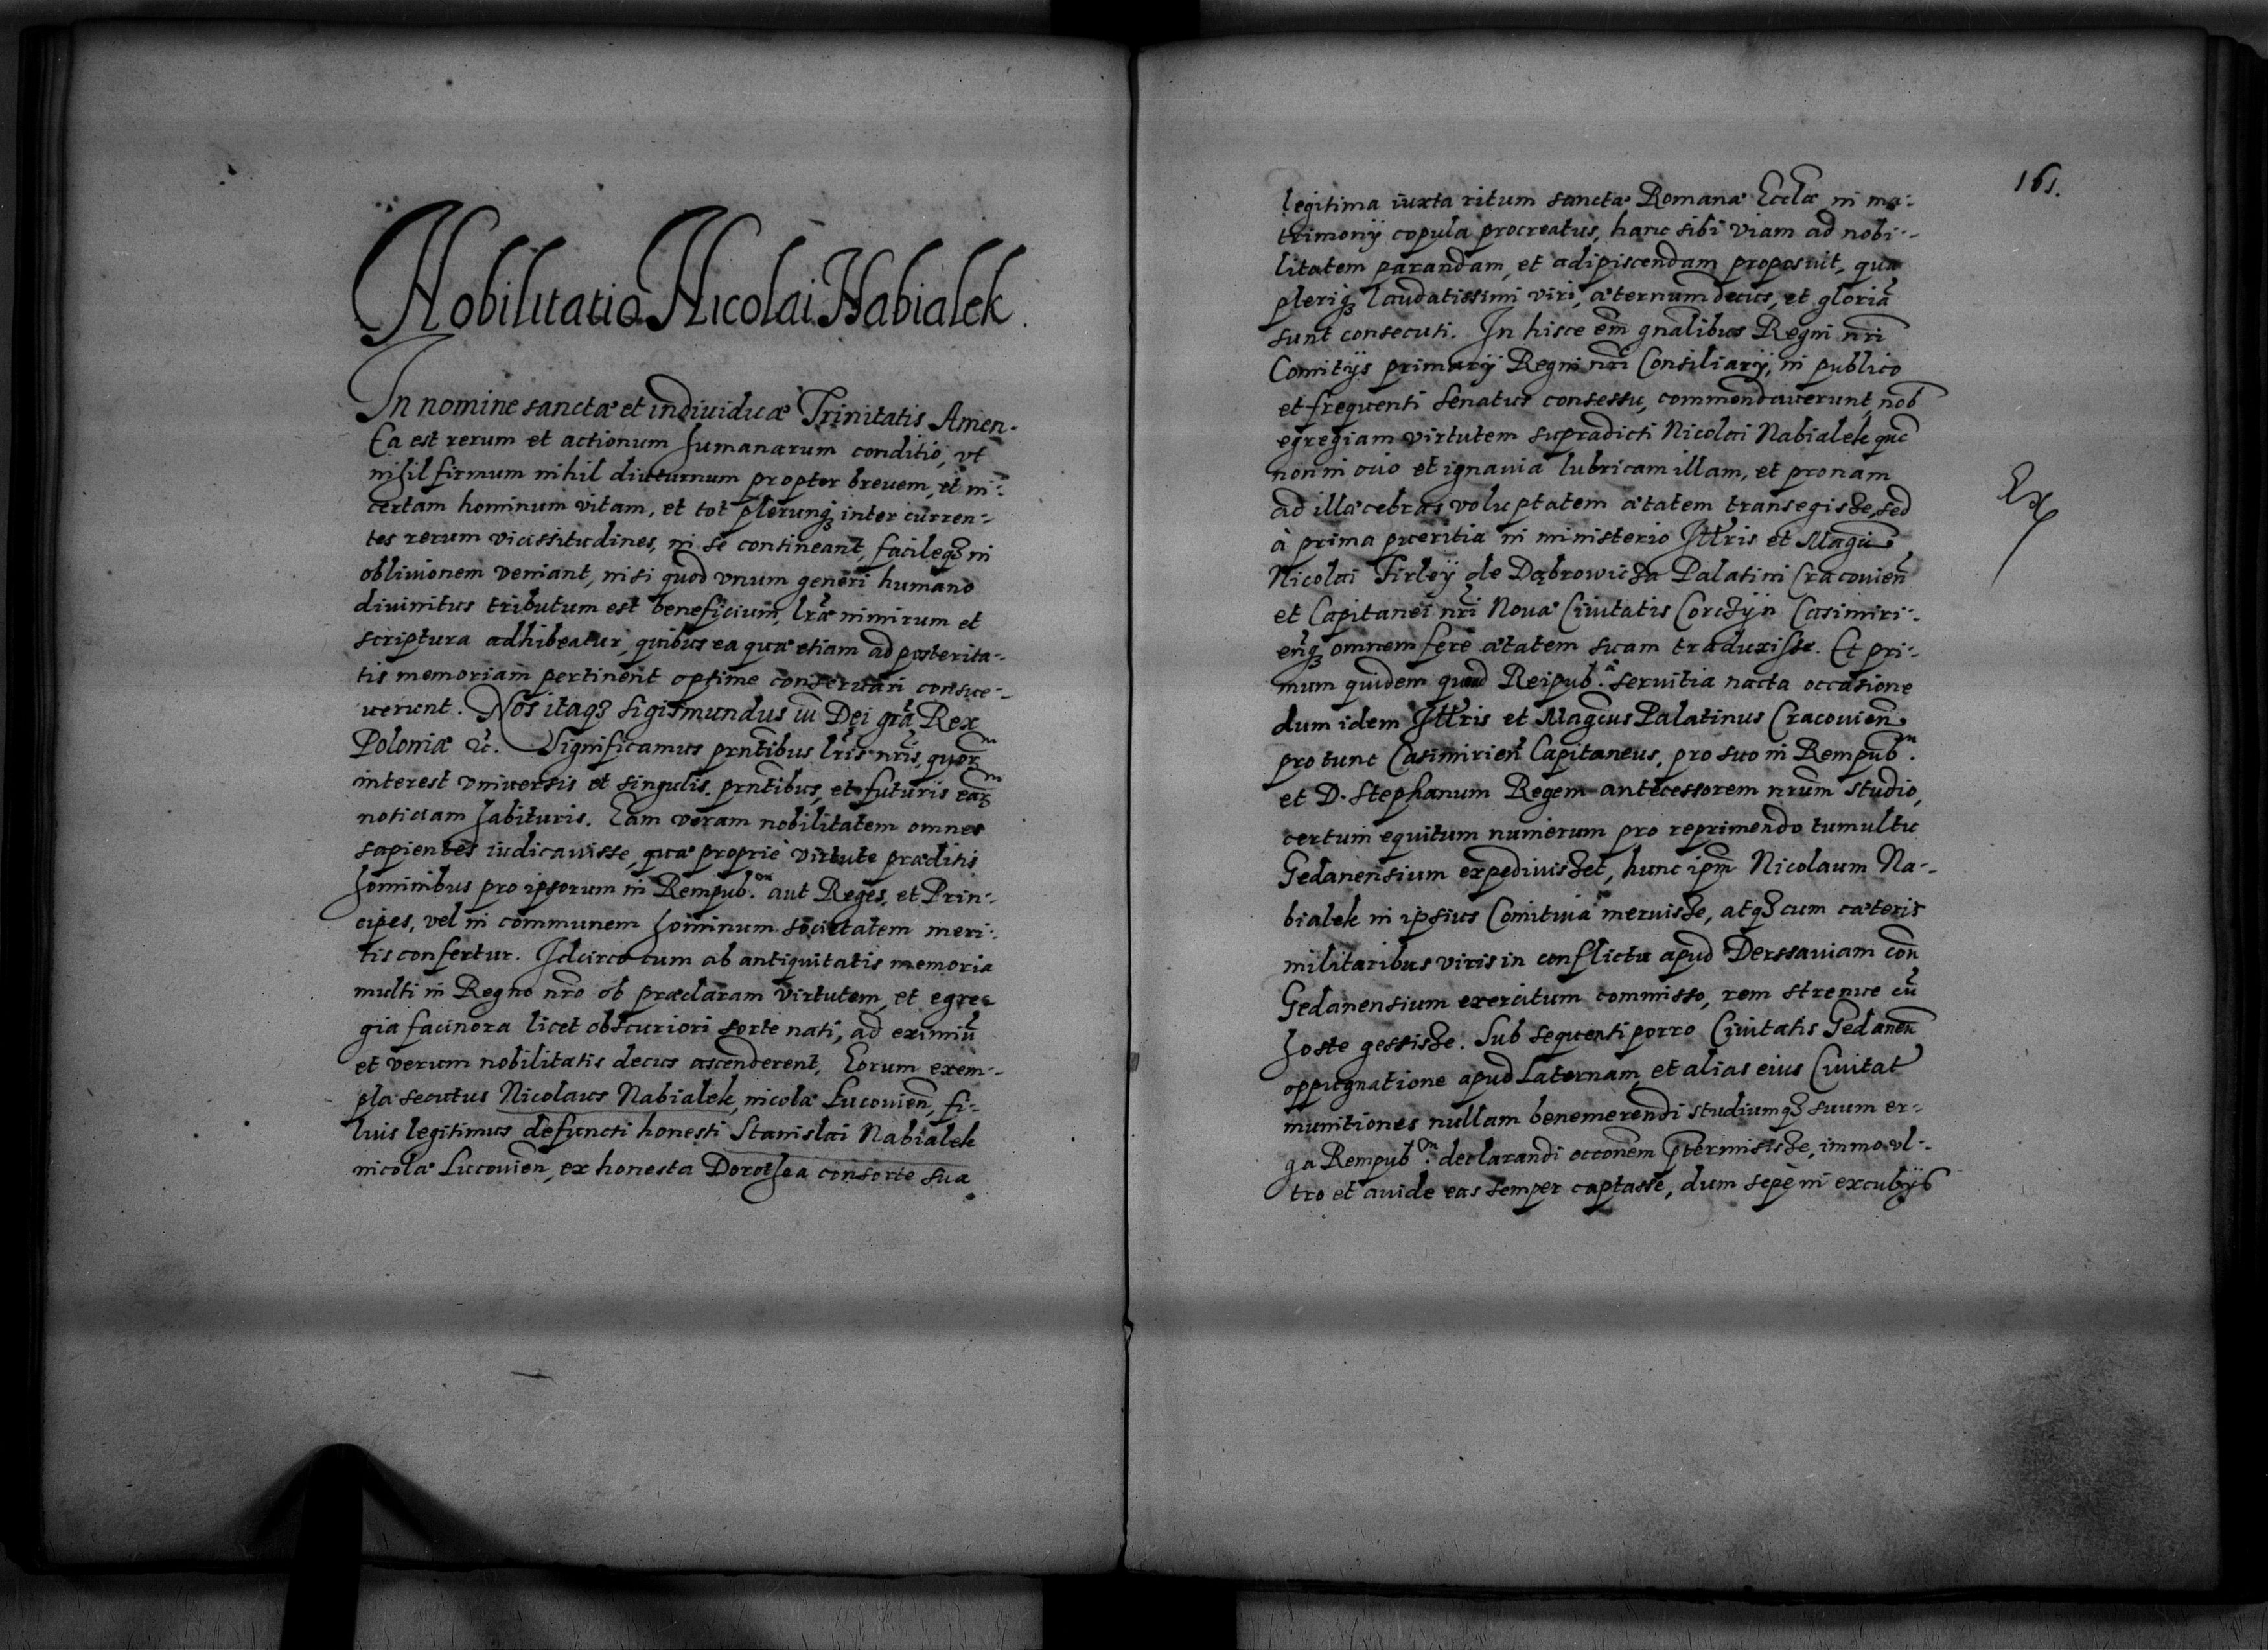 Nobilitatio Nicolai Nabialek.
In nomine sanctæ et indiuiduæ Trinitatis Amen.
Ea est rerum et actionum humanarum conditio, vt
nihil firmum nihil diuturnum propter breuem, et in-
certam hominum vitam, et tot plerunq3 inter curren-
tes rerum vicissitudines, in se contineant, facileq3 in
obliuionem veniant, nisi quod vnum generi humano
diuinitus tributum est beneficium, lræ nimirum et
scriptura adhibeatur, quibus ea quæ etiam ad posterita-
tis memoriam pertinent optime conseruari consue-
uerunt. Nos itaq3 Sigismundus iii Dei gra Rex
Poloniæ etc. Significamus prntibus lris nris, quorm
interest vniuersis et singulis, prntibus, et futuris earm
notitiam habituris. Eam veram nobilitatem omnes
sapientes iudicauisse, quæ proprie virtute præditis
hominibus pro ipsorum in Rempub. aut Reges, et Prin-
cipes, vel in communem hominum societatem meri-
tis confertur. Idcirco cum ab antiquitatis memoria
multi in Regno nro ob præclaram virtutem, et egre-
gia facinora licet obscuriori sorte nati, ad eximiu
et verum nobilitatis decus ascenderent, Eorum exem-
pla secutus Nicolaus Nabialek, incola Lucouien, fi-
lius legitimus defuncti honesti Stanislai Nabialek
incolæ Lucouien, ex honesta Dorothea consorte sua
161.
legitima iuxta ritum sanctæ Romanæ Eccla in ma-
trimonij copula procreatus, hanc sibi viam ad nobi-
litatem parandam, et adipiscendam proposuit, qua
pleriq3 laudatissimi viri, æternum decus, et gloria
sunt consecuti. In hisce em gnalibus Regni nri
Comitijs primarij Regni nri Consiliarij, in publico
et frequenti Senatus consessu, commendauerunt, nob
egregiam virtutem supradicti Nicolai Nabialek que
non in ocio et ignauia lubricam illam, et pronam
ad illæcebras voluptatem ætatem transegisse, sed
à prima pueritia in ministerio Illris et Magci
Nicolai Firleÿ de Dąbrowicza Palatini Cracouien
et Capitanei nri Nouæ Ciuitatis Corczÿn Casimiri-
enq3 omnem fere ætatem suam traduxisse. Et pri-
mum quidem quod Reipub. seruitia nacta occasione
dum idem Illris et Magcus Palatinus Cracouien
pro tunc Casimirien Capitaneus, pro suo in Rempub.
et D. Stephanum Regem antecessorem nrum studio,
certum equitum numerum pro reprimendo tumultu
Gedanensium expediuisset, hunc ipm Nicolaum Na-
bialek in ipsius Comitiua meruisse, atq3 cum cæteris
militaribus viris in conflictu apud Derssauiam con
Gedanensium exercitum commisso, rem strenue cu
hoste gessisse. Sub sequenti porro Ciuitatis Gedanen
oppugnatione apud Laternam, et alias eius Ciuitat
munitiones nullam benemerendi studiumq3 suum er-
ga Rempub. declarandi occonem ptermisisse, immo vl-
tro et auide eas semper captasse, dum sepè in excubijs
Ex